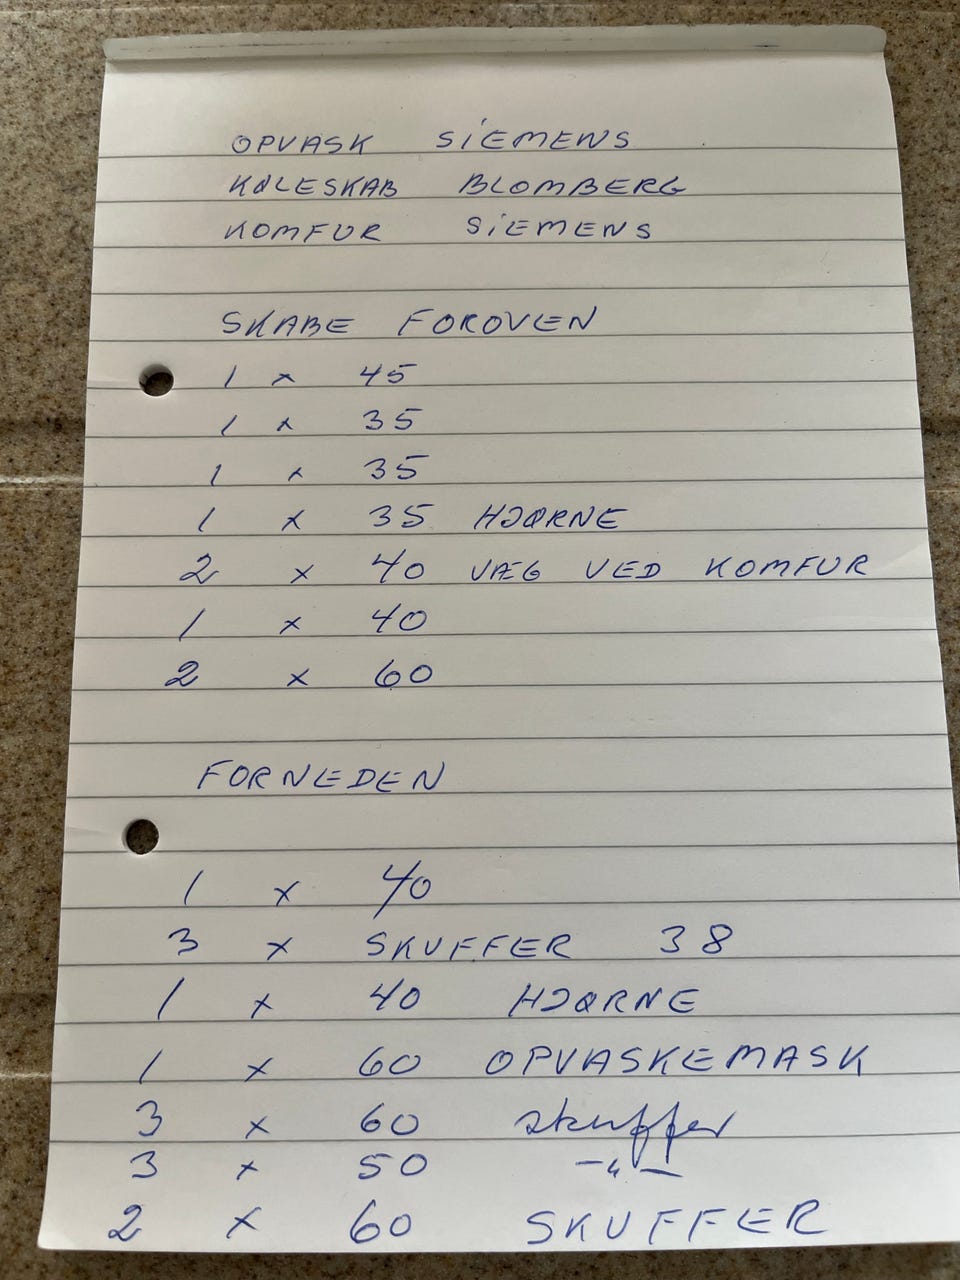 OPVASK SiEMENS
KØLESKAB BLOMBERG
KOMFUR SiEMENS
SKABE FOROVEN
1 x 45
1 x 35
1 x 35
1 x 35 HJØRNE
2 x 40 VÆG VED KOMFUR
1 x 40
2 x 60
FORNEDEN
1 x 40
3 x SKUFFER 38
1 x 40 HJØRNE
1 x 60 OPVASKEMASK
3 x 60 skuffer
3 x 50 —〃—
2 x 60 SKUFFER